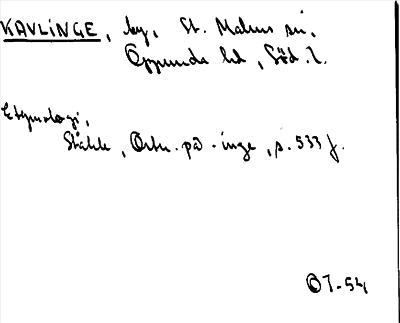 KAVLINGE, by, St. Malms sn,
Oppunda hd, Söd. l.
Etymologi,
Ståhle, Ortn. på -inge, s. 533 f.
OT-54